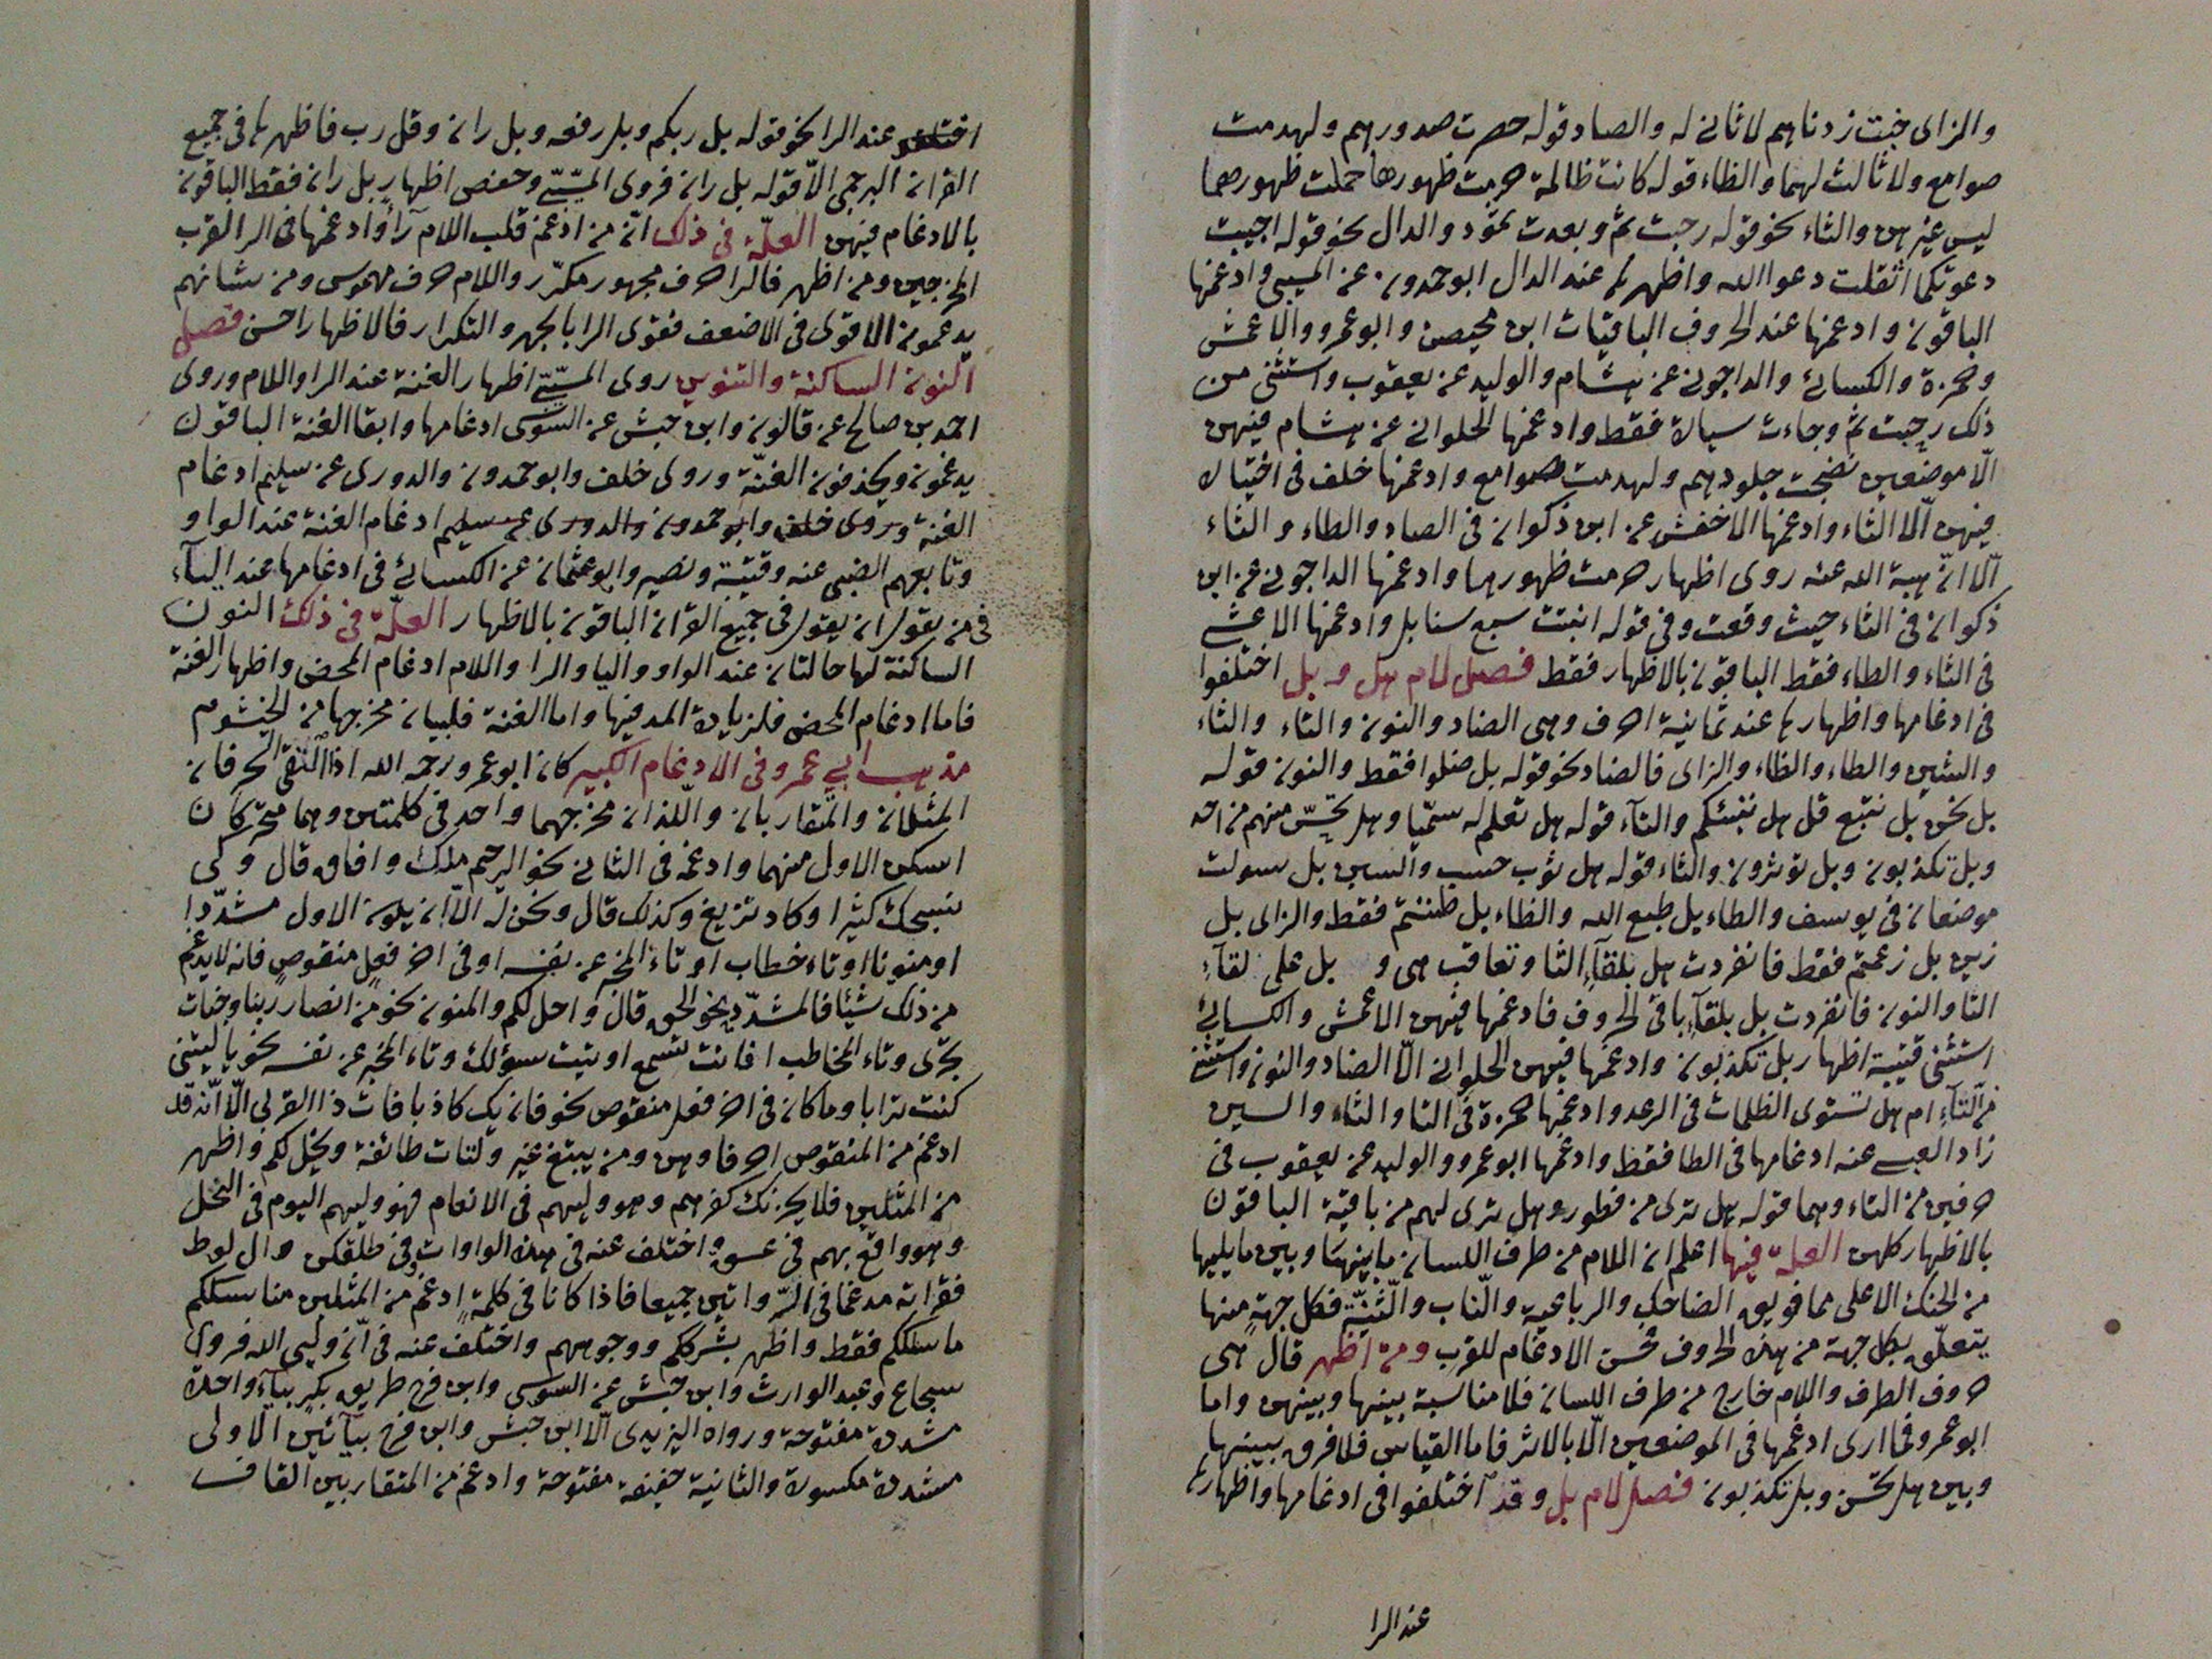 والزاى خبت زدناهم لا ثانى له والصاد قوله حصرت صدورهم ولهدمت
صوامع ولا ثالث لهما والظاء قوله كانت ظالمة حرمت ظهورها حملت ظهورهما
ليس غيرهن والثاء نحو قوله رحبت ثم وبعدت ثمود والدال نحو قوله اجيبت
دعوتكما اثقلت دعوا الله واظهرها عند الدال ابو حمدون عن المسيبى وادغمها
الباقون وادغمها عند الحروف الباقيات ابن محيصن وابو عمرو والاعمش
وحمزة والكسائى والداجونى عن هشام والوليد عن يعقوب واستثنى من
ذلك رحبت ثم وجاءت سيارة فقط وادغمها الحلوانى عن هشام فيهن
الّا موضعين نضجت جلودهم ولهدمت صوامع وادغمها خلف فى اختياره
فيهن الّا الثاء وادغمها الاخفش عن ابن ذكوان فى الصاد والظاء والثاء
الّا انّ هبة الله عنه روى اظهار حرمت ظهورها وادغمها الداجونى عن ابن
ذكوان فى الثاء حيث وقعت وفى قوله انبتت سبع سنابل وادغمها الاعشى
فى الثاء والظاء فقط الباقون بالاظهار فقط فصل لام هل وبل اختلفوا
فى ادغامها واظهارها عند ثمانية احرف وهى الضاد والنون والتاء والثاء
والسين والطاء والظاء والزاى فالضاد نحو قوله بل ضلوا فقط والنون قوله
بل نحن بل نتبع قل هل ننبئكم والتآء قوله هل تعلم له سميّا وهل تحسّ منهم من احد
وبل تكذبون وبل تؤثرون والثاء قوله هل ثوب حسب والسين بل سولت
موضعان فى يوسف والطاء بل طبع الله والظاء بل ظننتم فقط والزاى بل
زين بل زعمتم فقط فانفردت هل بلقآءِ الثا وتعاقب هى و بل على لقآءِ
التا والنون فانفردت بل بلقآءِ باقى الحروف فادغمها فيهن الاعمش والكسائى
استثنى قتيبة اظهار بل تكذبون وادغمها فيهن الحلوانى الّا الضاد والنون واستثنى
من التآءِ ام هل تستوى الظلمات فى الرعد وادغمها حمزة فى التا والثاء والسين
زاد العبسى عنه ادغامها فى الطا فقط وادغمها ابو عمرو والوليد عن يعقوب فى
حرفين من التاء وهما قوله هل ترى من فطور وهل ترى لهم من باقية الباقون
بالاظهار كلهن العلة فيها اعلم ان اللام من طرف اللسان ما بينها وبين ما يليها
من الحنك الاعلى مما فويق الضاحك والرباعية والنّاب والثّنيّة فكل جهة منها
يتعلّق بكل جهة من هذه الحروف فحسن الادغام للقرب ومن اظهر قال هى
حروف الطرف واللام خارج من طرف اللسان فلا مناسبة بينها وبينهن واما
ابو عمرو فما ارى ادغمها فى الموضعين الّا بالاثر فاما القياس فلا فرق بينها
وبين هل تحسّ وبل تكذبون فصل لام بل وقد اختلفوا فى ادغامها واظهارها
عند الرا
عند الرا نحو قوله بل ربكم وبل رفعه وبل ران وقل رب فاظهرها فى جميع
القران البرجمى الّا قوله بل ران فروى المسيّبى وحفص اظهار بل ران فقط الباقون
بالادغام فيهن العلّة فى ذلك انّ من ادغم قلب اللام رآءً وادغمها فى الرا لقرب
المخرجين ومن اظهر فالرا حرف مجهور مكرّر واللام حرف مهموس ومن شانهم
يدغمون الاقوى فى الاضعف فقوى الرا بالجهر والتكرار فالاظهار احسن فصل
النون الساكنة والتنوين روى المسيّبى اظهار الغنة عند الرا واللام وروى
احمد بن صالح عن قالون وابن حبش عن السّوسى ادغامها وابقا الغنة الباقون
يدغمون ويحذفون الغنّة وروى خلف وابو حمدون والدورى عن سليم ادغام
الغنة وروى خلف وابو حمدون والدورى عن سليم ادغام الغنة عند الواو
وتابعهم الضبى عنه وقتيبة ونصير وابو عثمان عن الكسائى فى ادغامها عند اليآء
فى من يقول ان يقول فى جميع القران الباقون بالاظهار العلّة فى ذلك النون
الساكنة لها حالتان عند الواو واليا والرا واللام ادغام المحض واظهار الغنة
فاما ادغام المحض فلزيادة المد فيها واما الغنة فلبيان مخرجها من الخيشوم
مذهب ابى عمرو فى الادغام الكبير كان ابو عمرو رحمه الله اذا التقى الحرفان
المثلان والمتقاربان واللذان مخرجهما واحد فى كلمتين وهما متحركان
اسكن الاول منهما وادغمه فى الثانى نحو الرحيم ملك وافاق قال وكى
نسبحك كثيرا وكاد تزيغ وكذلك قال ونحن له الّا ان يكون الاول مشدّدا
او منونا او تاء خطاب او تاء المخبر عن نفسه او فى اخر فعل منقوص فانه لا يدغم
من ذلك شيئا فالمشدّد نحو الحق قال واحل لكم والمنون نحو من انصار ربنا وجنات
تجرى وتاء المخاطب افانت تسمع اوتيت سؤلك وتاء المخبر عن نفسه نحو ياليتنى
كنت ترابا وما كان فى اخر فعل منقوص نحو فان يك كاذبا فات ذا القربى الّا انّه قد
ادغم من المنقوص احرفا وهن ومن يبتغ غير ولتات طائفة ويخل لكم واظهر
من المثلين فلا يحزنك كفرهم وهو وليهم فى الانعام فهو وليهم اليوم فى النحل
وهو واقع بهم فى عسق واختلف عنه فى هذه الواوات وفى طلقكن وال لوط
فقراته مدغما فى الرّوايتين جميعا فاذا كانا فى كلمة ادغم من المثلين مناسككم
ما سلككم فقط واظهر بشرككم ووجوههم واختلف عنه فى انّ وليى الله فروى
شجاع وعبد الوارث وابن حبش عن السوسى وابن فرح طريق بكر بياءٍ واحدة
مشددة مفتوحة ورواه اليزيدى الّا ابن حبش وابن فرح بيآئين الاولى
مشددة مكسورة والثانية خفيفة مفتوحة وادغم من المتقاربين القاف